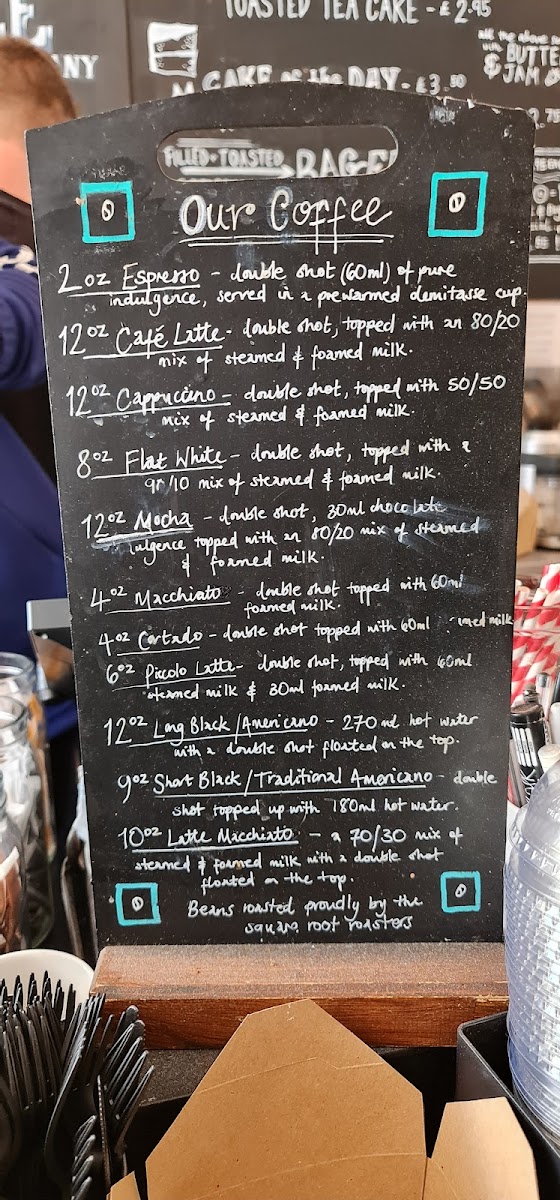 TOASTED TEA CAKE - £2.95
CAKE of the DAY - £3.50
BUTTE
& JAM
NY
FILLED + TOASTED BAGE
Our Coffee
2oz Espresso - double shot (60ml) of pure
indulgence, served in a prewarmed demitasse cup.
12oz Café Latte - double shot, topped with an 80/20
mix of steamed & foamed milk.
12oz Cappuccino - double shot, topped with 50/50
mix of steamed & foamed milk.
8oz Flat White - double shot, topped with a
90/10 mix of steamed & foamed milk.
12oz Mocha - double shot, 30ml chocolate
ulgence topped with an 80/20 mix of steamed
& foamed milk.
4oz Macchiato - double shot topped with 60ml
foamed milk.
4oz Cortado - double shot topped with 60ml med milk
6oz Piccolo Latte - double shot, topped with 60ml
steamed milk & 30ml foamed milk.
12oz Long Black/Americano - 270ml hot water
with a double shot floated on the top.
9oz Short Black/Traditional Americano - double
shot topped up with 180ml hot water.
10oz Latte Macchiato - a 70/30 mix of
steamed & foamed milk with a double shot
floated on the top.
Beans roasted proudly by the
square root roasters